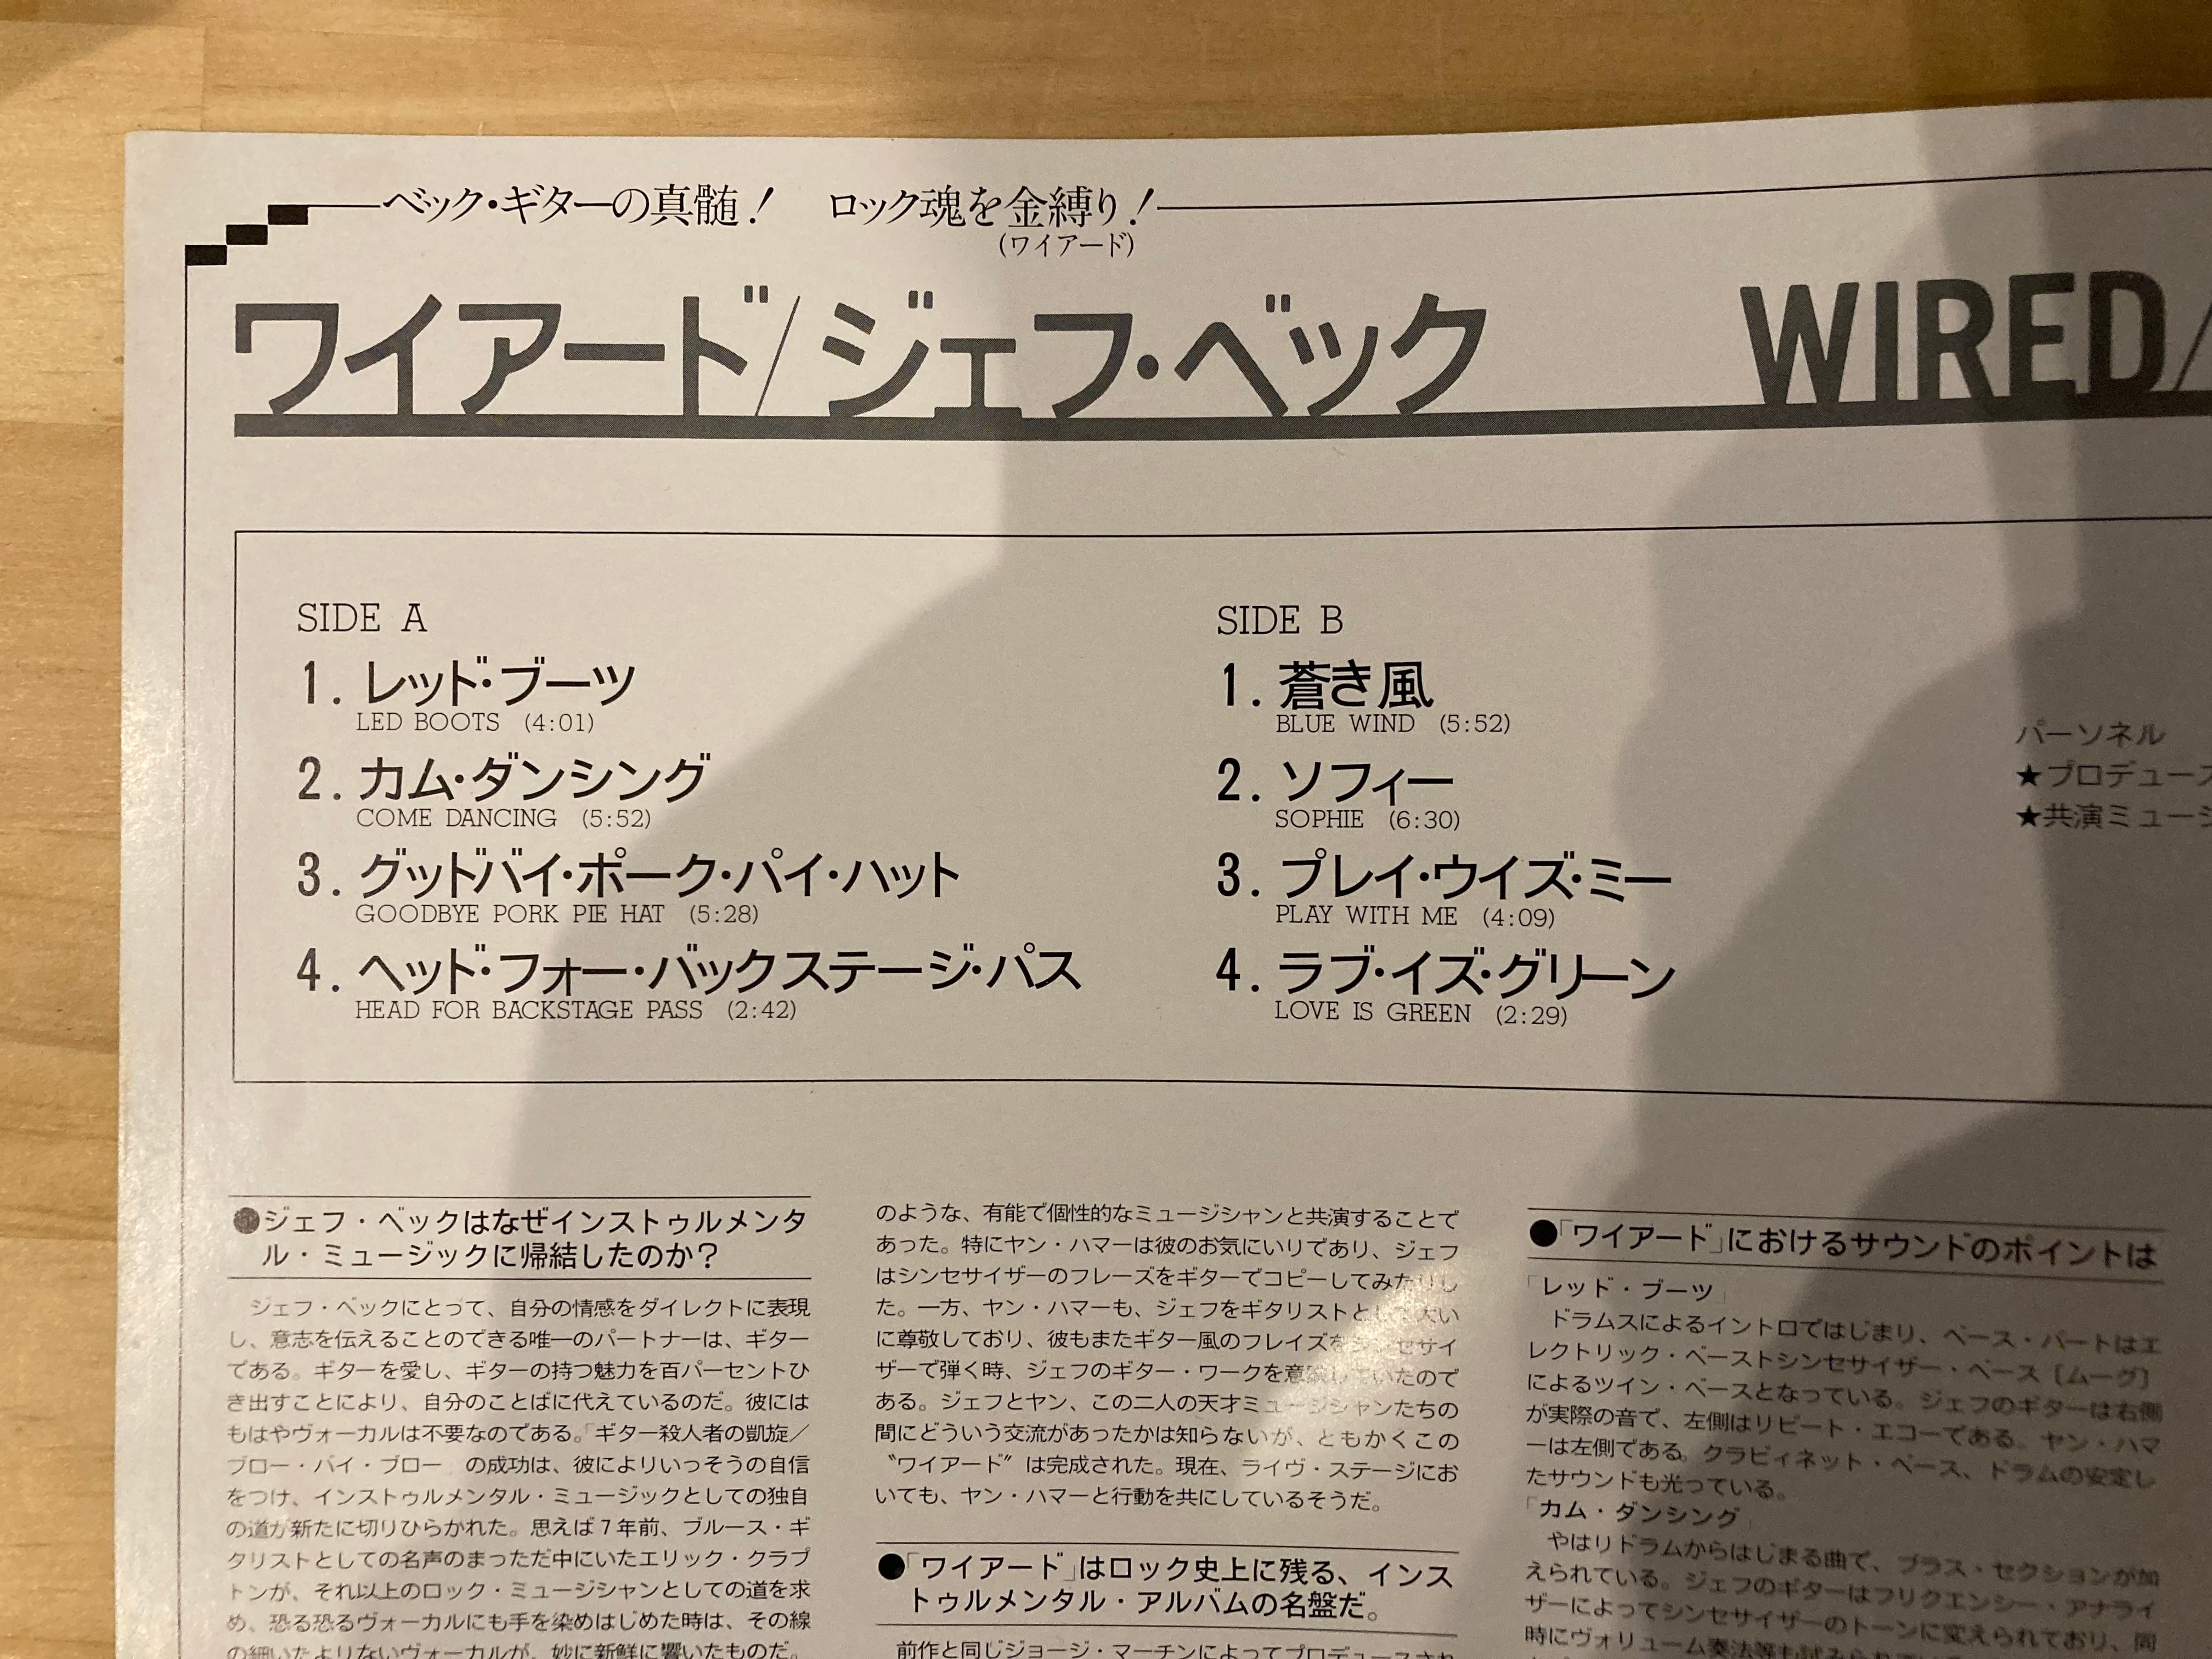 ベック・ギターの真髄！　ロック魂を金縛り！
(ワイアード)
ワイアード/ジェフ・ベック　WIRED/
SIDE A
1. レッド・ブーツ
LED BOOTS (4:01)
2. カム・ダンシング
COME DANCING (5:52)
3. グッドバイ・ポーク・パイ・ハット
GOODBYE PORK PIE HAT (5:28)
4. ヘッド・フォー・バックステージ・パス
HEAD FOR BACKSTAGE PASS (2:42)
SIDE B
1. 蒼き風
BLUE WIND (5:52)
2. ソフィー
SOPHIE (6:30)
3. プレイ・ウイズ・ミー
PLAY WITH ME (4:09)
4. ラブ・イズ・グリーン
LOVE IS GREEN (2:29)
パーソネル
★プロデュース
★共演ミュージ
●ジェフ・ベックはなぜインストゥルメンタ
ル・ミュージックに帰結したのか？
ジェフ・ベックにとって、自分の情感をダイレクトに表現
し、意志を伝えることのできる唯一のパートナーは、ギター
である。ギターを愛し、ギターの持つ魅力を百パーセントひ
き出すことにより、自分のことばに代えているのだ。彼には
もはやヴォーカルは不要なのである。「ギター殺人者の凱旋／
ブロー・バイ・ブロー」の成功は、彼によりいっそうの自信
をつけ、インストゥルメンタル・ミュージックとしての独自
の道が新たに切りひらかれた。思えば７年前、ブルース・ギ
タリストとしての名声のまっただ中にいたエリック・クラプ
トンが、それ以上のロック・ミュージシャンとしての道を求
め、恐る恐るヴォーカルにも手を染めはじめた時は、その線
の細いたよりないヴォーカルが、妙に新鮮に響いたものだ。
のような、有能で個性的なミュージシャンと共演することで
あった。特にヤン・ハマーは彼のお気にいりであり、ジェフ
はシンセサイザーのフレーズをギターでコピーしてみたりし
た。一方、ヤン・ハマーも、ジェフをギタリストとして大い
に尊敬しており、彼もまたギター風のフレイズをシンセサイ
ザーで弾く時、ジェフのギター・ワークを意識していたので
ある。ジェフとヤン、この二人の天才ミュージシャンたちの
間にどういう交流があったかは知らないが、ともかくこの
"ワイアード" は完成された。現在、ライヴ・ステージにお
いても、ヤン・ハマーと行動を共にしているそうだ。
●「ワイアード」はロック史上に残る、インス
トゥルメンタル・アルバムの名盤だ。
前作と同じジョージ・マーチンによってプロデュースされ
●「ワイアード」におけるサウンドのポイントは
「レッド・ブーツ」
ドラムスによるイントロではじまり、ベース・パートはエ
レクトリック・ベーストシンセサイザー・ベース〔ムーグ〕
によるツイン・ベースとなっている。ジェフのギターは右側
が実際の音で、左側はリピート・エコーである。ヤン・ハマ
ーは左側である。クラビィネット・ベース、ドラムの安定し
たサウンドも光っている。
「カム・ダンシング」
やはりドラムからはじまる曲で、ブラス・セクションが加
えられている。ジェフのギターはフリクエンシー・アナライ
ザーによってシンセサイザーのトーンに変えられており、同
時にヴォリューム奏法等も試みられ